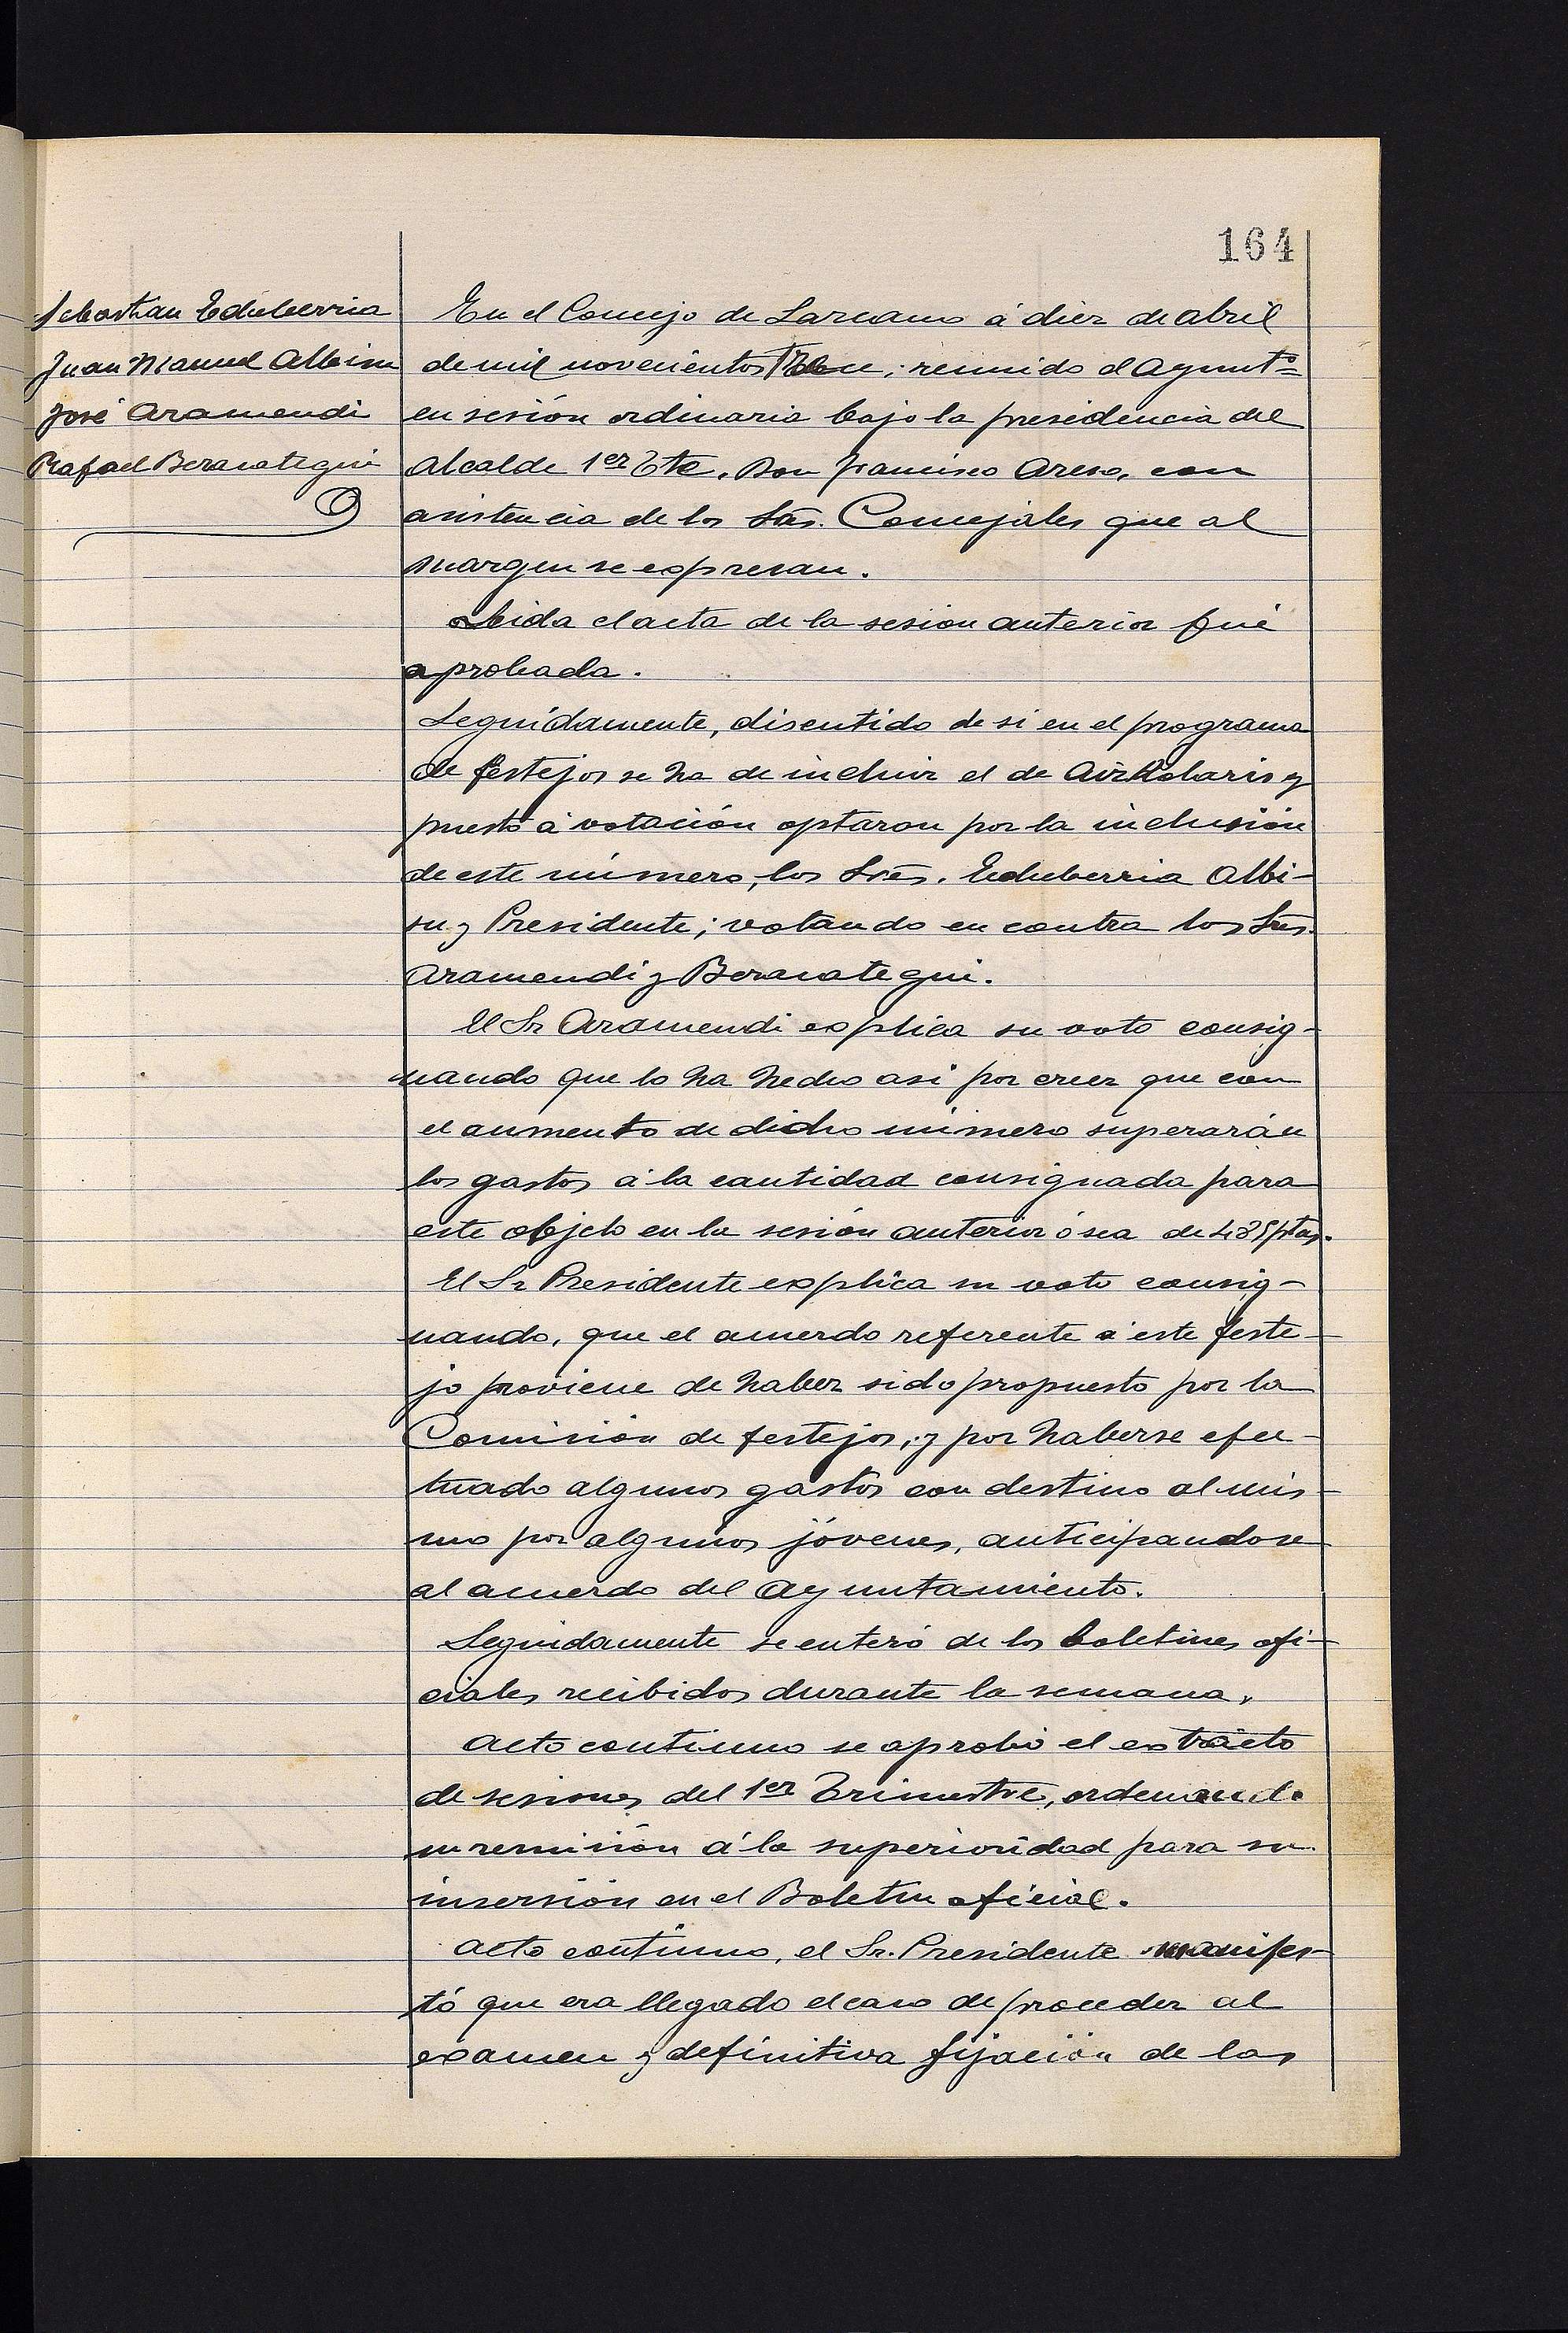 164
Sebastian Echeberria
Juan Manuel Albisu
José Aramendi
Rafael Berasategui
En el Concejo de Lazcano á diez de abril
de mil novecientos Trece; reunido el Ayuntº
en sesión ordinaria bajo la presidencia del
Alcalde 1er Tte. Don Francisco Areso, con
asistencia de los Sres. Concejales que al
margen se expresan.
Leida el acta de la sesion anterior fué
aprobada.
Seguidamente, discutido de si en el programa
de festejos se ha de incluir el de Aizkolaris y
puesto á votación optaron por la inclusión
de este número, los Sres. Echeberria Albi-
su y Presidente; votando en contra los Sres.
Aramendi y Berasategui.
El Sr Aramendi explica su voto consig-
nando que lo ha hecho asi por creer que con
el aumento de dicho número superarán
los gastos á la cantidad consignada para
este objeto en la sesión anterior ó sea de ptas.
El Sr Presidente explica su voto consig-
nando, que el acuerdo referente á este feste-
jo proviene de haber sido propuesto por la
Comisión de festejos, y por haberse efec-
tuado algunos gastos con destino al mis-
mo por algunos jóvenes, anticipandose
al acuerdo del Ayuntamiento.
Seguidamente se enteró de los boletines ofi-
ciales recibidos durante la semana.
Acto continuo se aprobó el extracto
de sesiones del 1er Trimestre, ordenando
su remisión á la superioridad para su
inserción en el Boletin oficial.
Acto continuo, el Sr. Presidente manifes-
tó que era llegado el caso de proceder al
examen y definitiva fijación de las